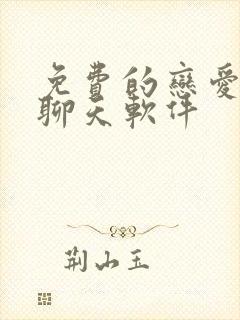 免費的戀愛
聊天軟件
荆山玉